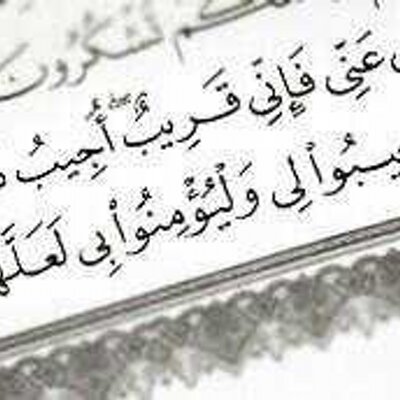 تَشْكُرُونَ
عَنِّى فَإِنِّى قَرِيبٌ أُجِيبُ
يبُوا۟ لِى وَلْيُؤْمِنُوا۟ بِى لَعَلَّه